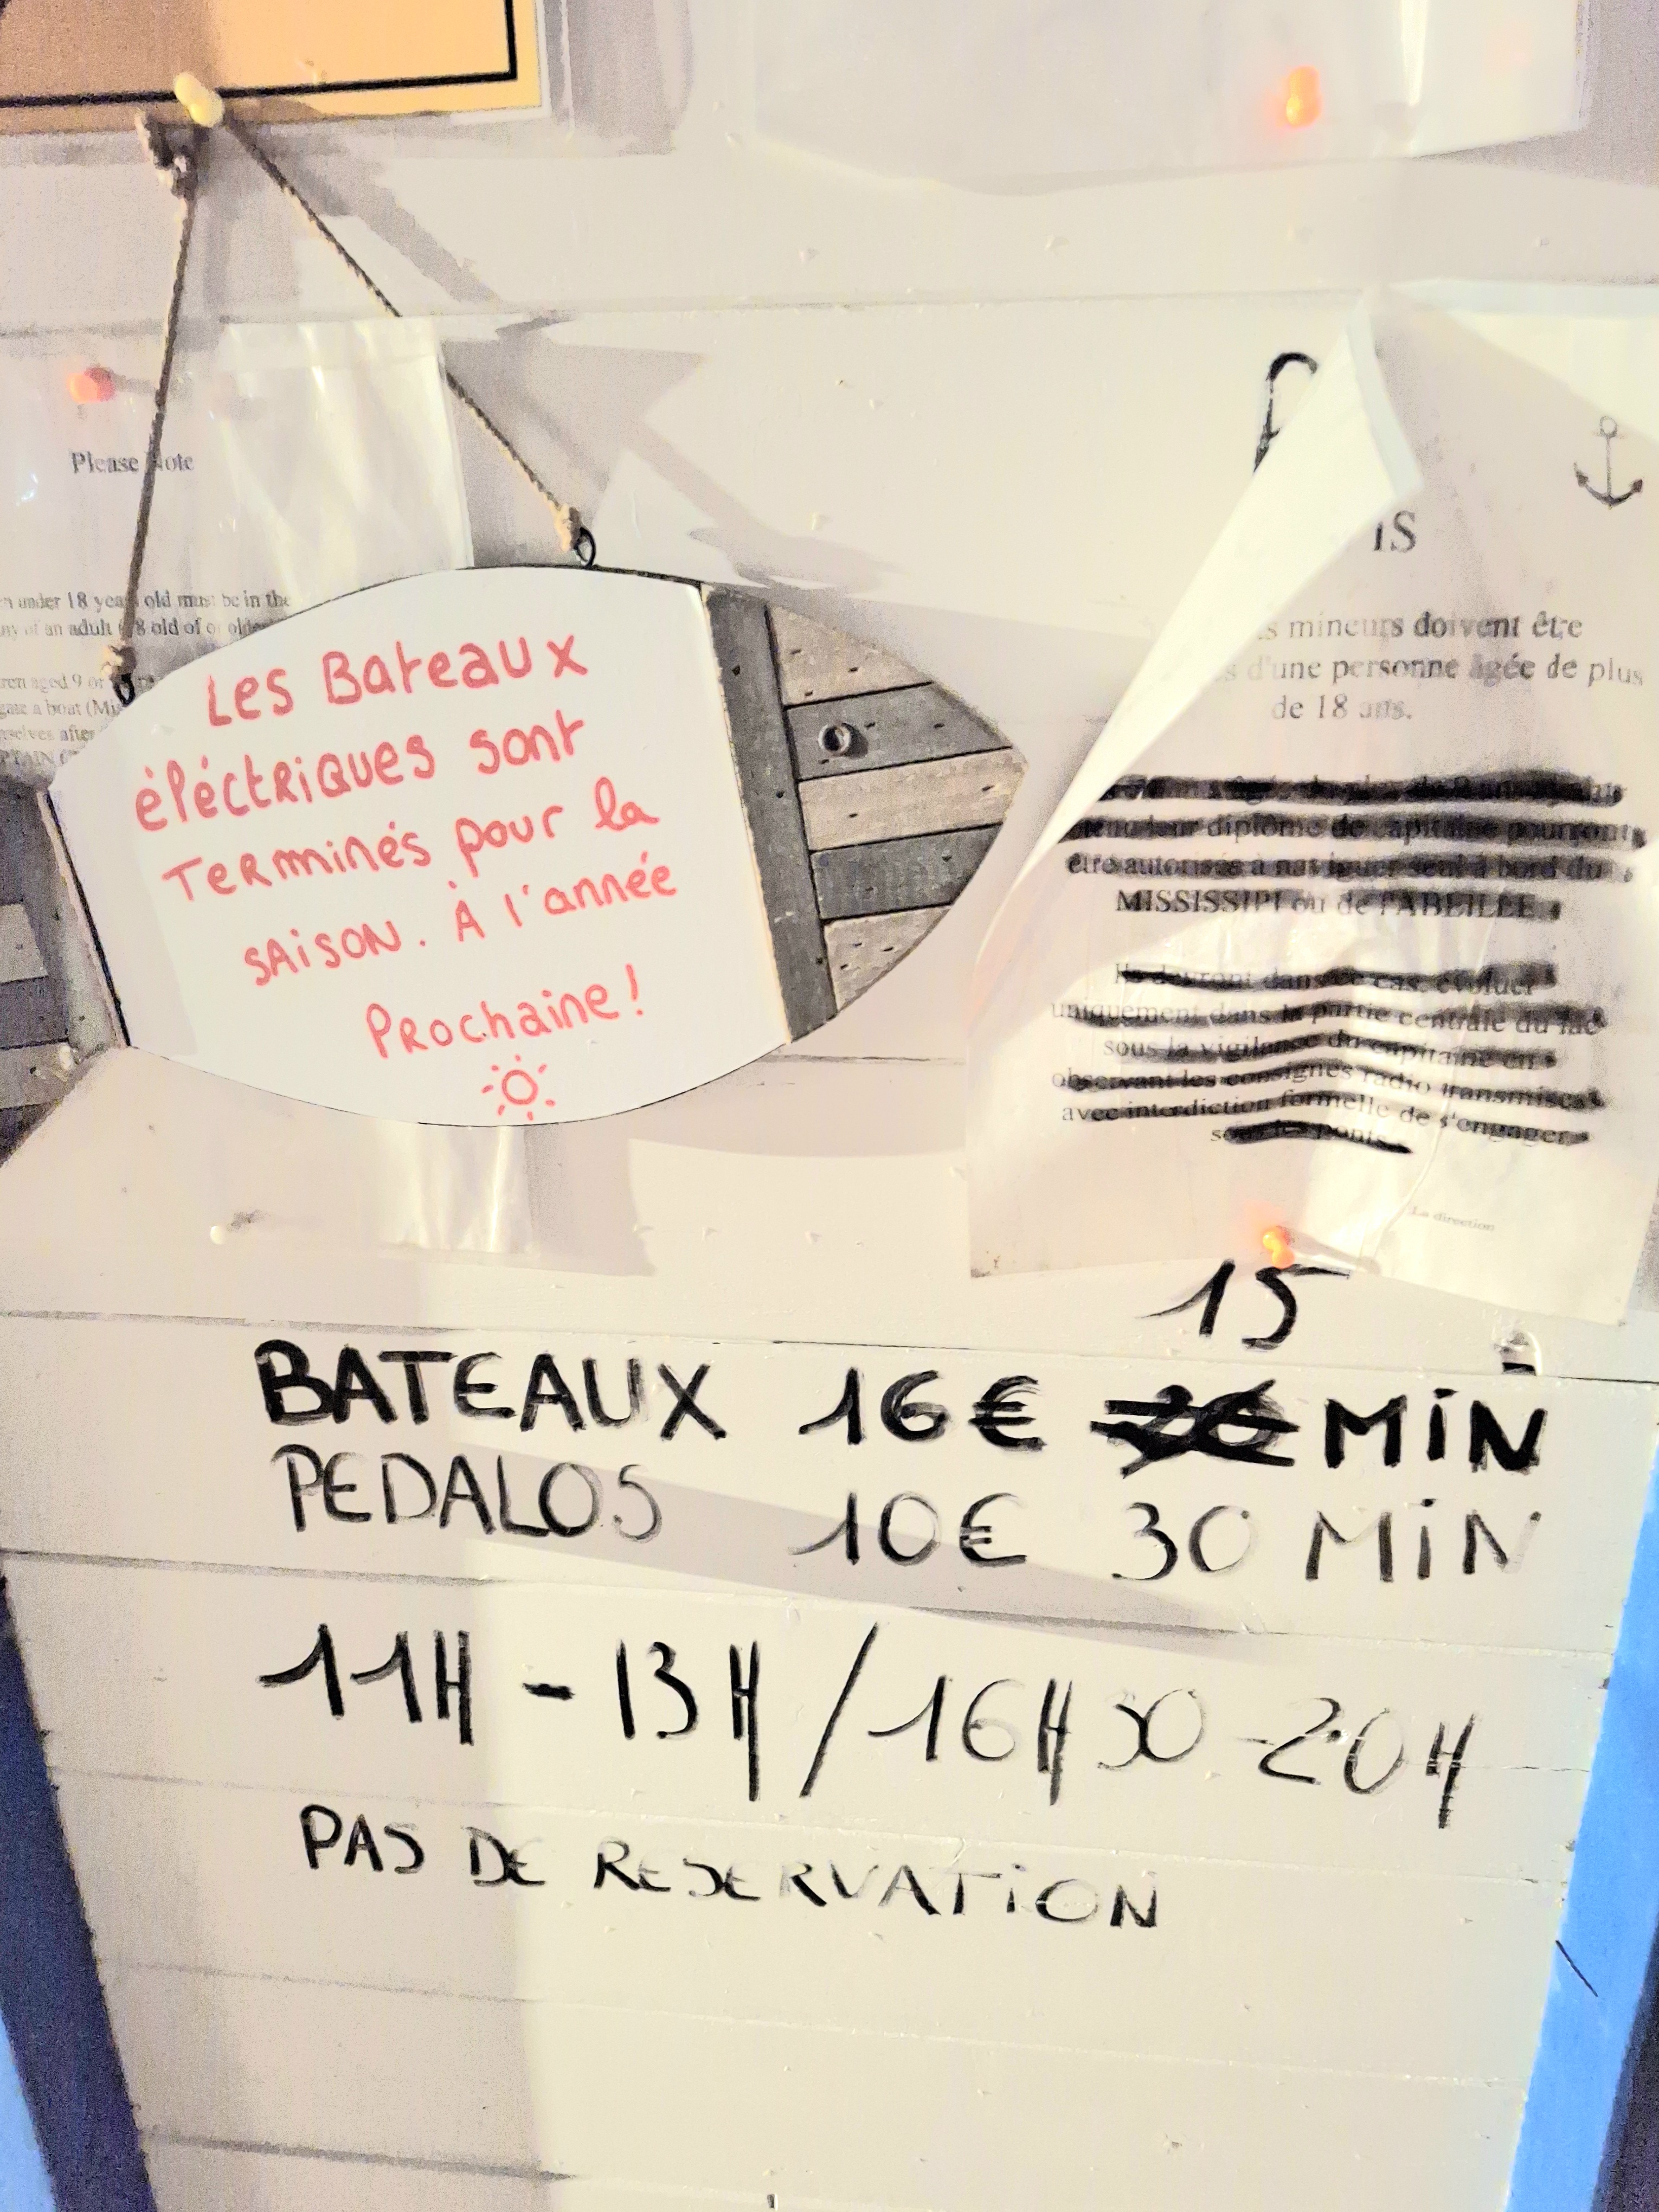 Please Note
under 18 years old must be in the
of an adult
aged 9 or
a boat
after
Les Bateaux
éléctriques sont
Terminés pour la
saison. À l'année
Prochaine!
IS
mineurs doivent être
d'une personne âgée de plus
de 18 ans.
leur diplôme de capitaine pourront
être autorisés à naviguer seul à bord du
MISSISSIPI ou de l'ABEILLE.
Ils devront dans ce cas, évoluer
uniquement dans la partie centrale du lac
sous la vigilance du capitaine en
observant les consignes radio transmises
avec interdiction formelle de s'engager
sous les ponts.
La direction
15
BATEAUX 16€ MiN
PEDALOS 10€ 30 MiN
11H - 13H / 16H30 - 20H
PAS DE RESERVATiON